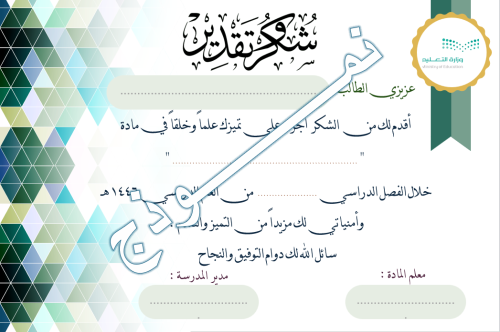 شكر وتقدير
وزارة التعليم
Ministry of Education
عزيزي الطالب ........................................
أقدم لك من الشكر أجزله على تميزك علماً وخلقاً في مادة
" ........................................ "
خلال الفصل الدراسي .................. من العام الدراسي ١٤٤٦هـ
وأمنياتي لك مزيداً من التميز
سائل الله لك دوام التوفيق والنجاح
معلم المادة :
مدير المدرسة :
........................
........................
نموذج